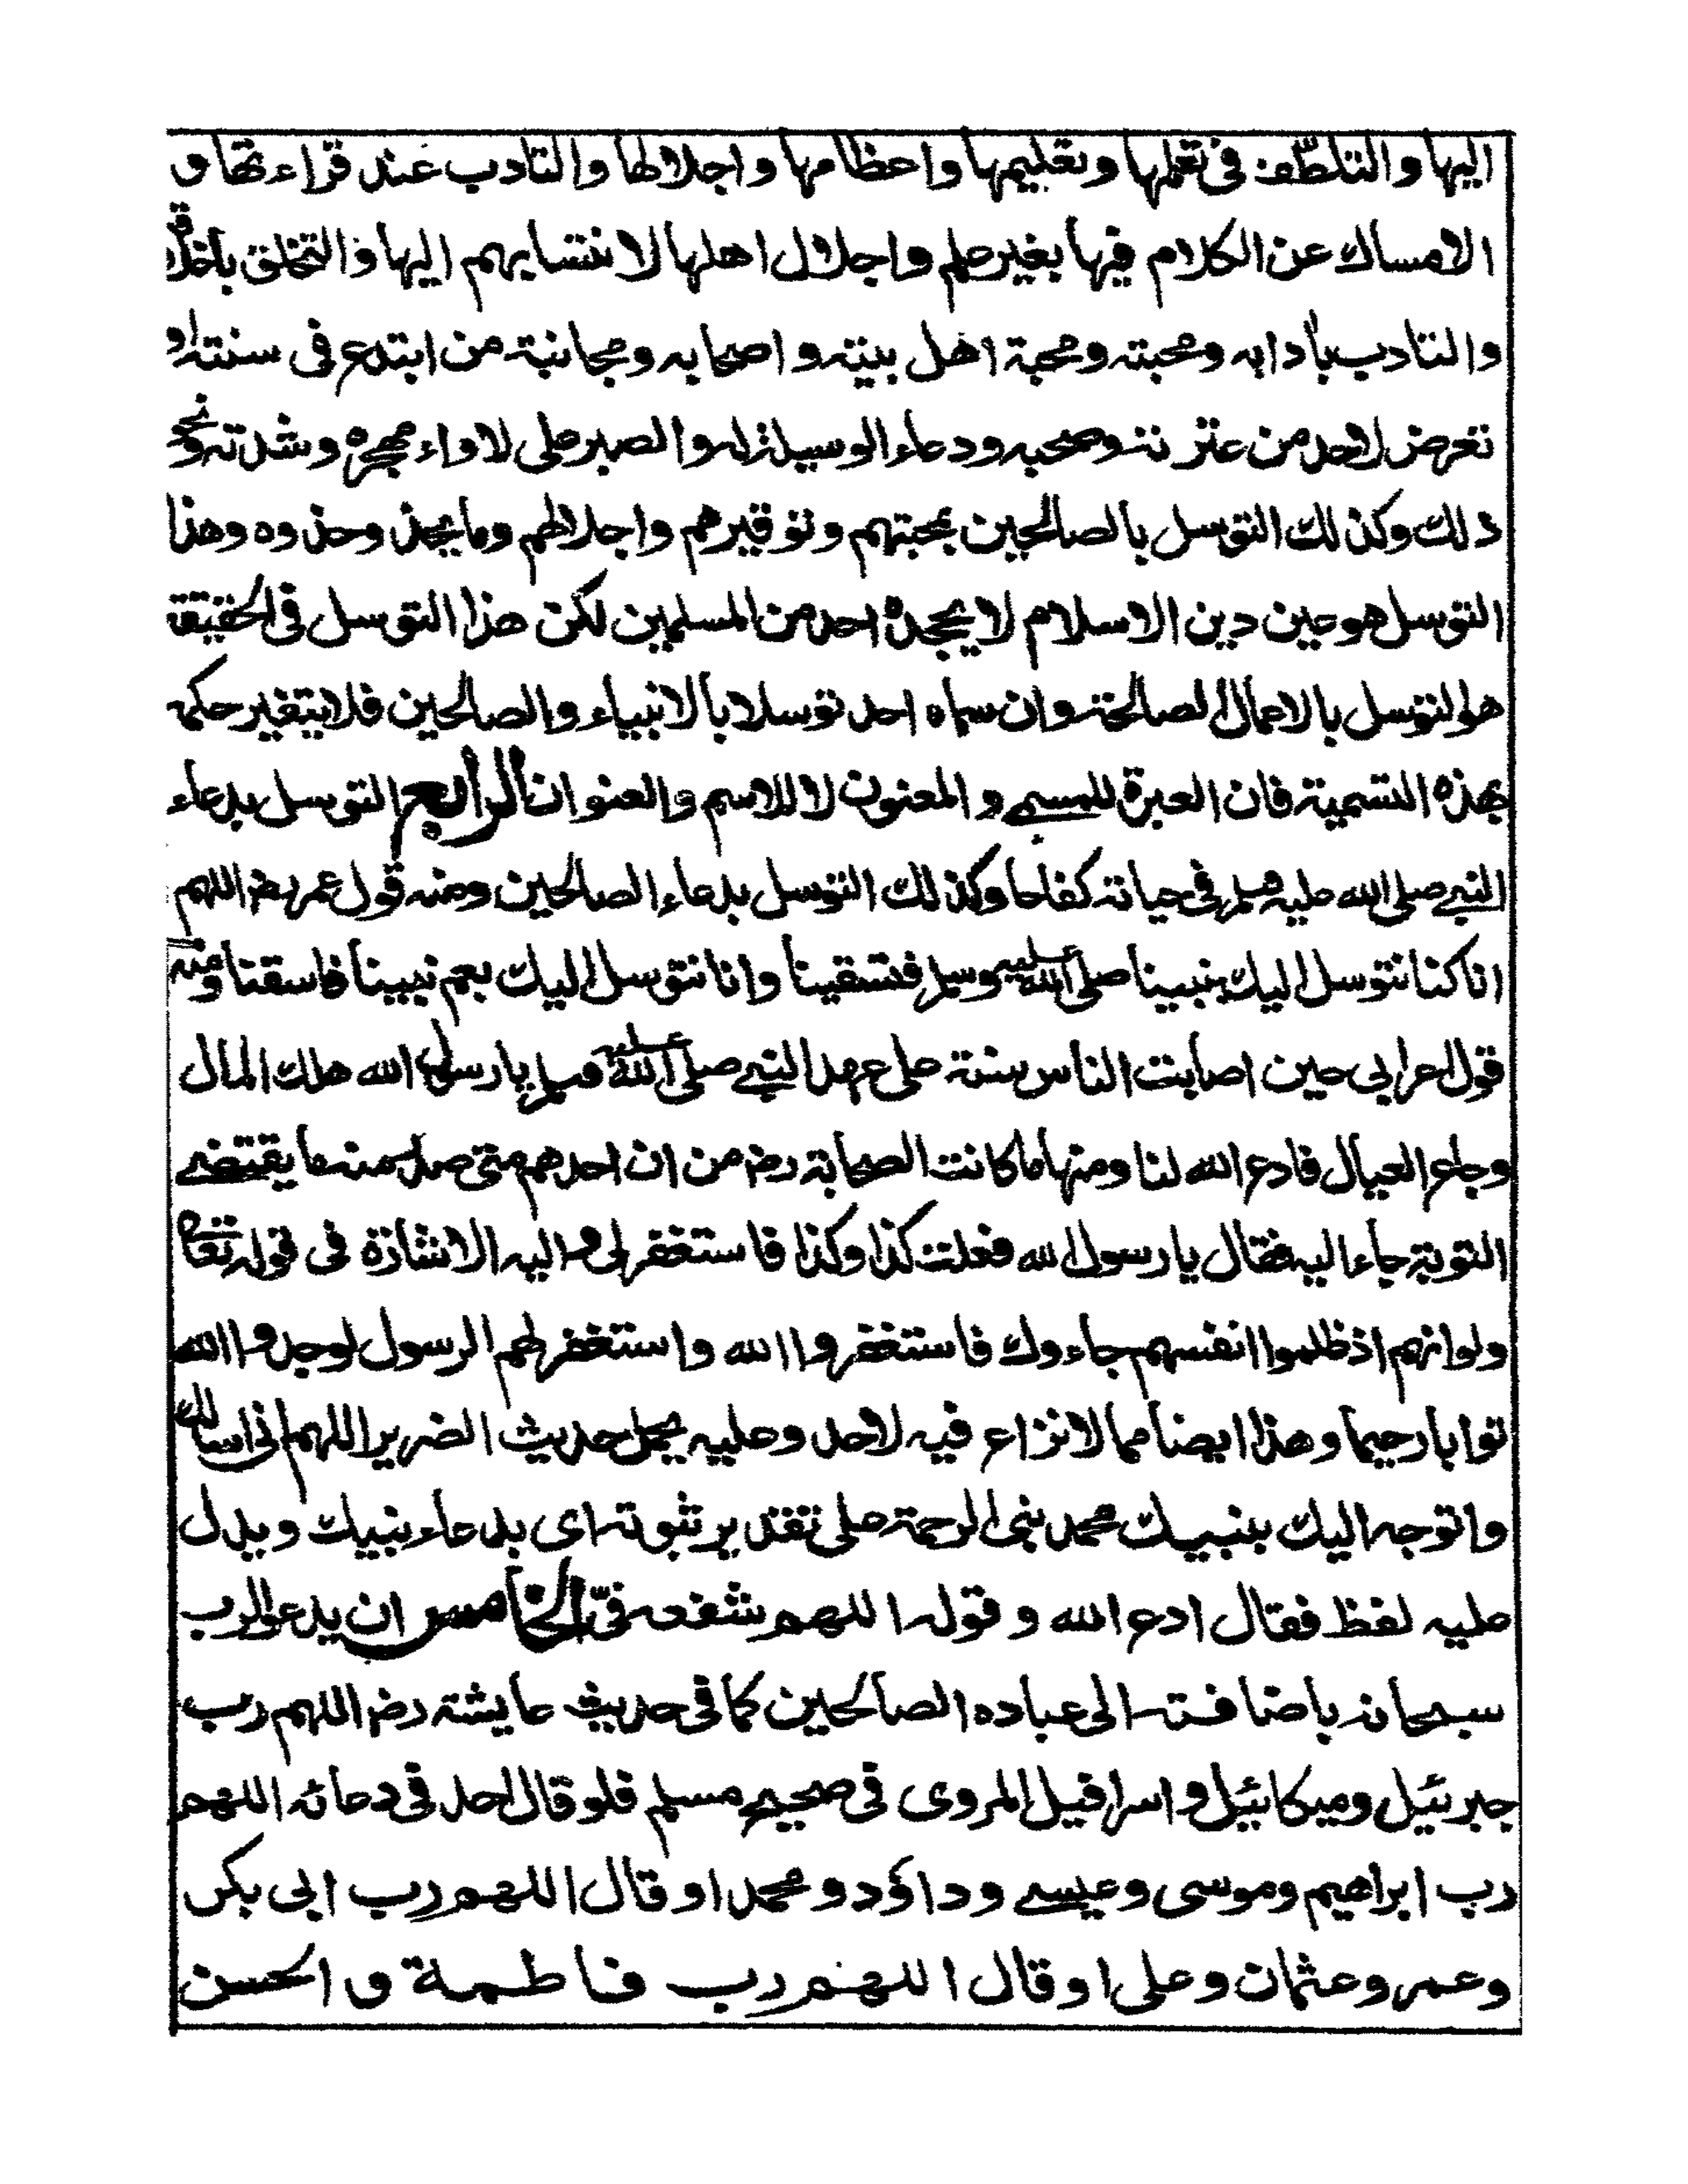 اليها والتلطف فى تعلمها وتعليمها واعظامها واجلالها والتادب عند قراءتها و
الامساك عن الكلام فيها بغير علم واجلال اهلها لانتسابهم اليها والتخلق باخلاقه
والتادب بآدابه ومحبته ومحبة اهل بيته واصحابه ومجانبة من ابتدع فى سنته او
تعرض لاحد من عترته وصحبه ودعاء الوسيلة له والصبر على لاواء مهجره وشدته ونحو
ذلك وكذلك التوسل بالصالحين بمحبتهم وتوقيرهم واجلالهم وما يحذو حذوه وهذا
التوسل هو عين دين الاسلام لا يجحده احد من المسلمين لكن هذا التوسل فى الحقيقة
هو التوسل بالاعمال الصالحة وان سماه احد توسلا بالانبياء والصالحين فلا يتغير حكمه
بهذه التسمية فان العبرة للمسمى والمعنون لا للاسم والعنوان الرابع التوسل بدعاء
النبى صلى الله عليه وسلم فى حياته كفاحا وكذلك التوسل بدعاء الصالحين ومنه قول عمر رضـ اللهم
انا كنا نتوسل اليك بنبينا صلى الله عليه وسلم فتسقينا وانا نتوسل اليك بعم نبينا فاسقنا ومنه
قول اعرابى حين اصابت الناس سنة على عهد النبى صلى الله عليه وسلم يا رسول الله هلك المال
وجاع العيال فادع الله لنا ومنها ما كانت الصحابة رضـ من ان احدهم متى صدر منه ما يقتضى
التوبة جاء اليه فقال يا رسول الله فعلت كذا وكذا فاستغفر لى واليه الاشارة فى قوله تعالى
ولو انهم اذ ظلموا انفسهم جاءوك فاستغفروا الله واستغفر لهم الرسول لوجدوا الله
توابا رحيما وهذا ايضا مما لا نزاع فيه لاحد وعليه يحمل حديث الضرير اللهم انى اسالك
واتوجه اليك بنبيك محمد نبى الرحمة على تقدير ثبوته اى بدعاء نبيك ويدل
عليه لفظ فقال ادع الله و قوله اللهم شفعه فىّ الخامس ان يدعو الرب
سبحانه باضافته الى عباده الصالحين كما فى حديث عايشة رضـ اللهم رب
جبرئيل وميكائيل واسرافيل المروى فى صحيح مسلم فلو قال احد فى دعائه اللهم
رب ابراهيم وموسى وعيسى وداؤد ومحمد او قال اللهم رب ابى بكر
وعمر وعثمان وعلى او قال اللهم رب فاطمة و الحسن